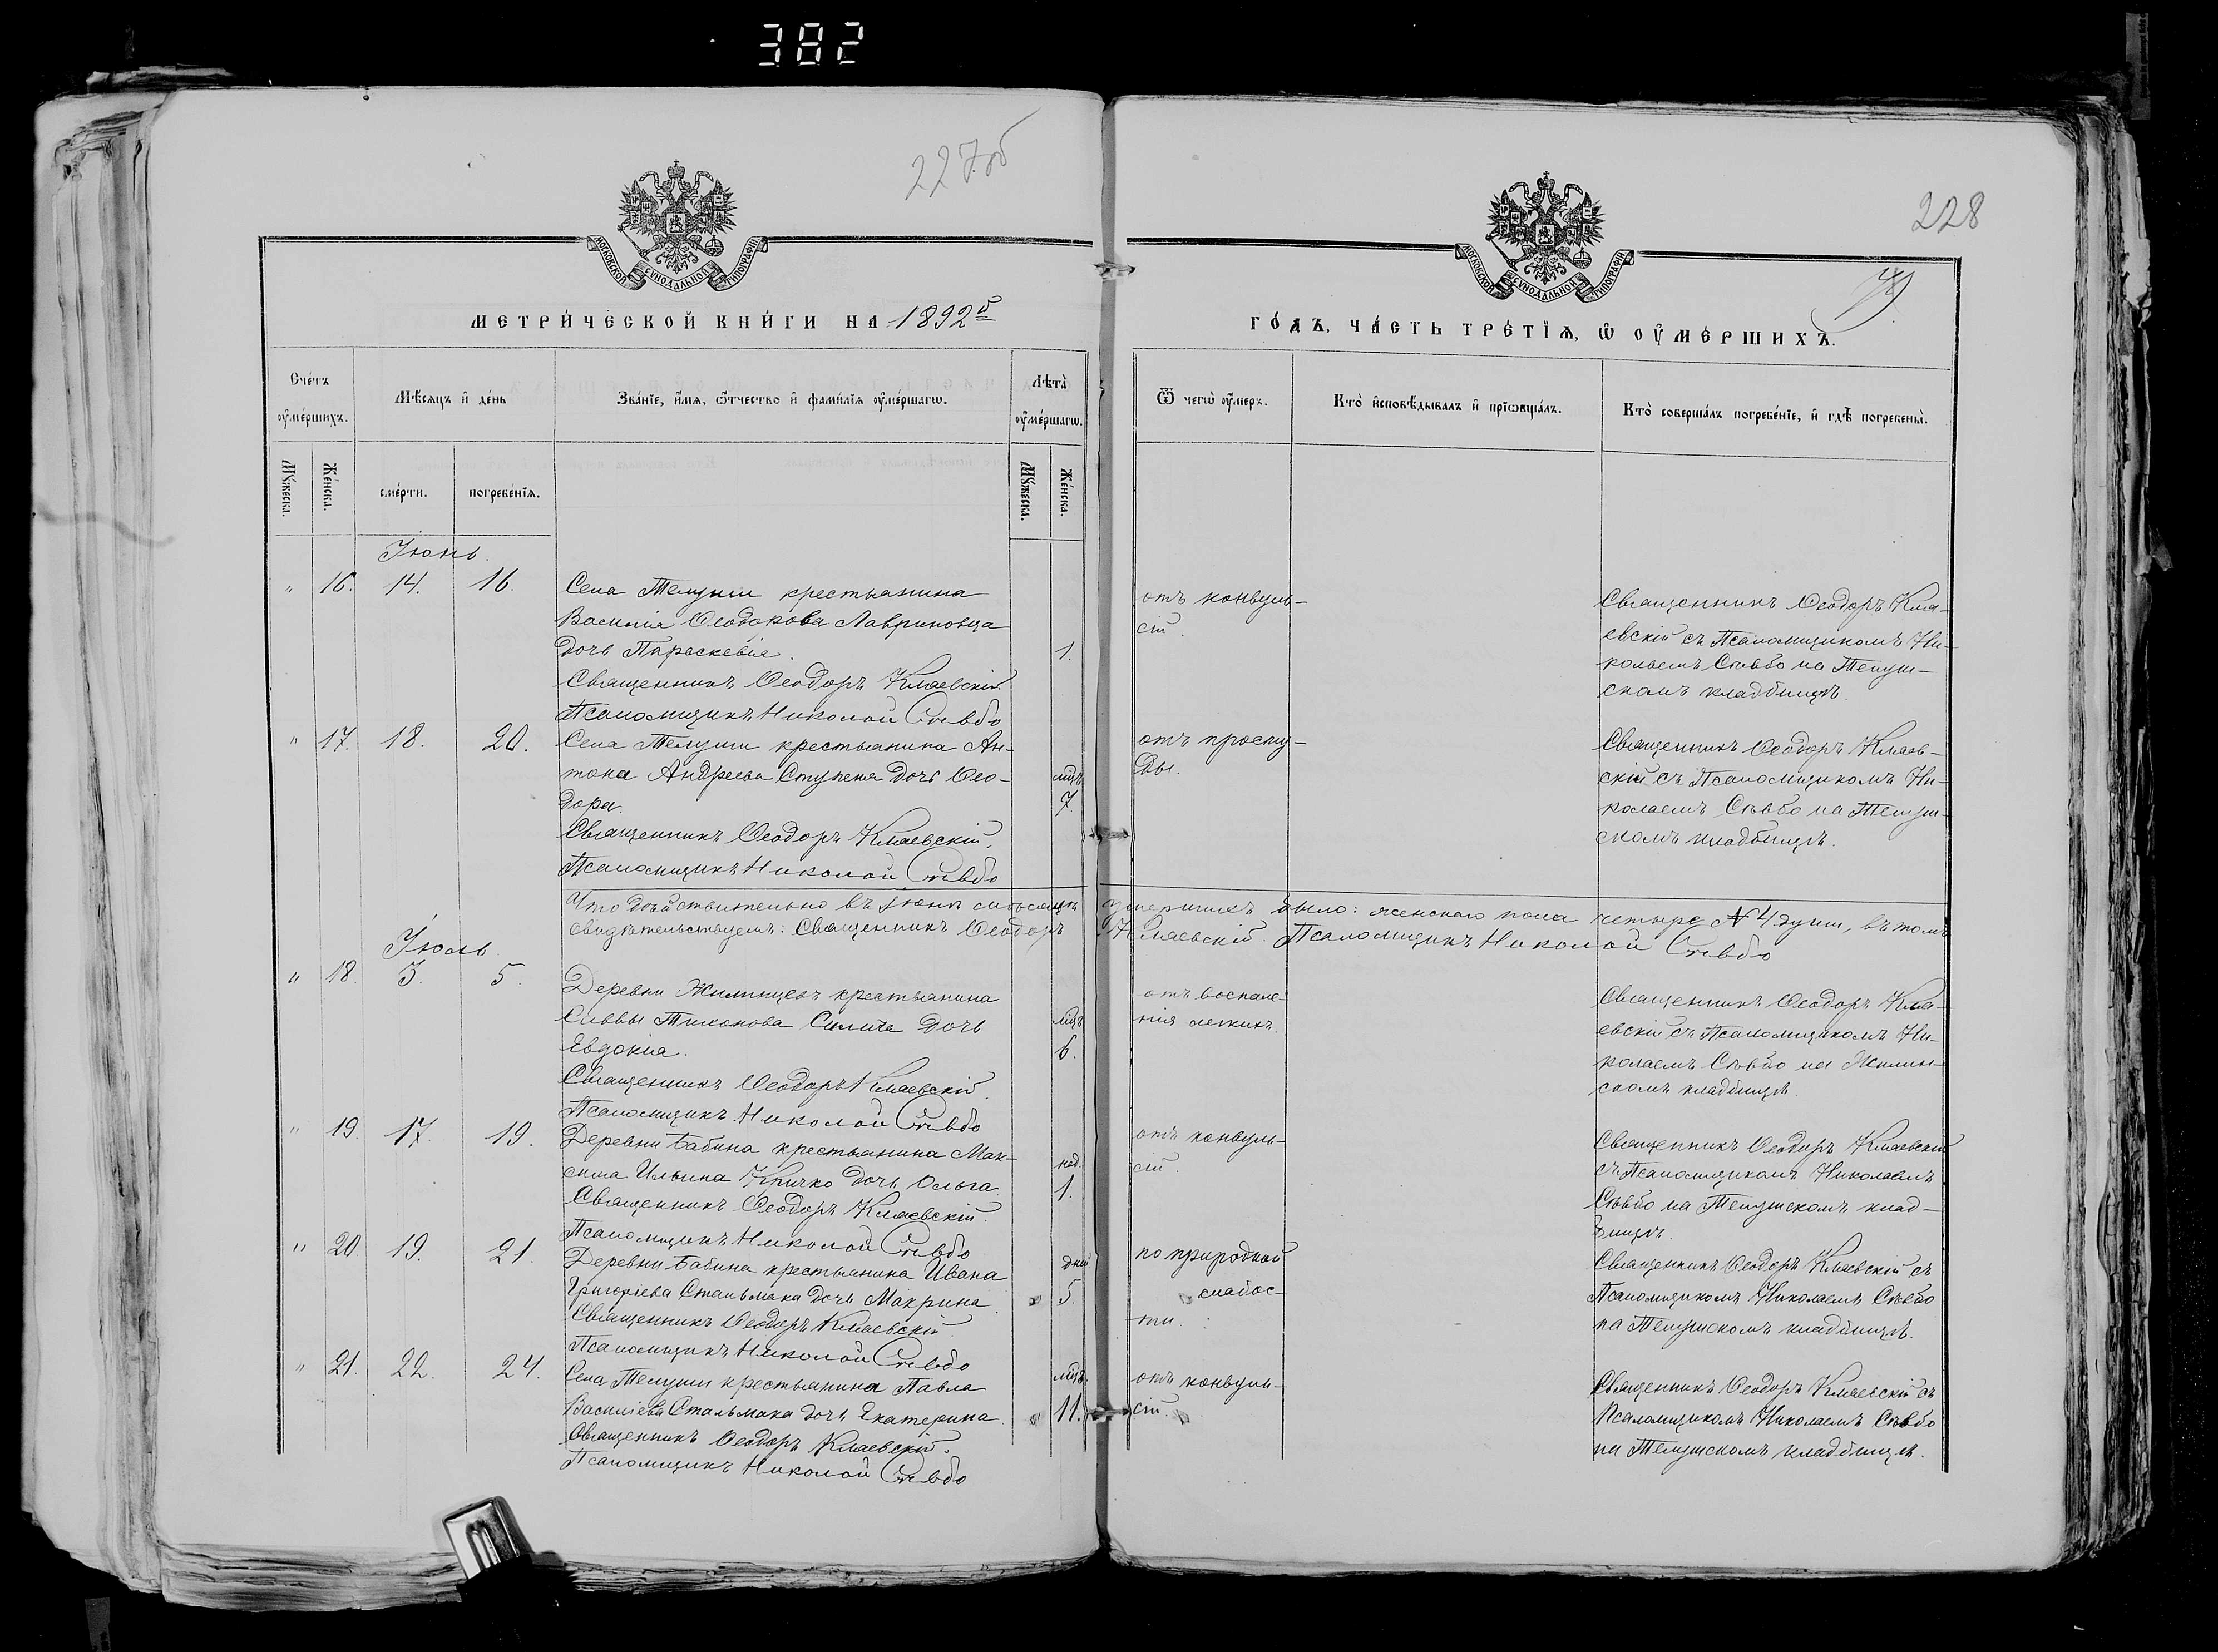 382
227об
228
МОСКОВСКОЙ СѴНОДАЛЬНОЙ ТИПОГРАФІИ
МОСКОВСКОЙ СѴНОДАЛЬНОЙ ТИПОГРАФІИ
МЕТРИ́ЧЕСКОЙ КНИ́ГИ НА 1892й
ГО́ДЪ, ЧА́СТЬ ТРЕ́ТІѦ, Ѡ ОУ҆МЕ́РШИХЪ.
Сче́тъ оу҆ме́ршихъ.
Мѣ́сяцъ и҆ де́нь
Зва́нїе, и҆́мѧ, ѻ҆́тчество и҆ фами́лїѧ оу҆ме́ршагѡ.
Лѣта̀ оу҆ме́ршагѡ.
Ѿ чегѡ̀ оу҆́меръ.
Кто̀ и҆сповѣ́дывалъ и҆ прїѡбща́лъ.
Кто̀ соверша́лъ погребе́нїе, и҆ гдѣ̀ погребены̀.
Мꙋ́жеска.
Же́нска.
сме́рти.
погребе́нїѧ.
Мꙋ́жеска.
Же́нска.
Іюнь.
" 16. 14. 16.
Села Телуши крестьянина
Василія Ѳеодорова Лавриновца
дочь Параскевія.
1.
Священникъ Ѳеодоръ Кмаевскій.
Псаломщикъ Николай Сѣвбо
отъ конвуль-
сій.
Священникъ Ѳеодоръ Кма-
евскій съ Псаломщикомъ Ни-
колаемъ Сѣвбо на Телуш-
скомъ кладбищѣ.
" 17. 18. 20.
Села Телуши крестьянина Ан-
тона Андреева Ступеня дочь Ѳео-
дора.
мѣц.
7.
Священникъ Ѳеодоръ Кмаевскій.
Псаломщикъ Николай Сѣвбо
отъ просту-
ды.
Священникъ Ѳеодоръ Кмаев-
скій съ Псаломщикомъ Ни-
колаемъ Сѣвбо на Телуш-
скомъ кладбищѣ.
Что дѣйствительно въ іюнѣ мѣсяцѣ умершихъ было: женскаго пола четыре № 4 души, въ томъ
свидѣтельствуемъ: Священникъ Ѳеодоръ Кмаевскій. Псаломщикъ Николай Сѣвбо
Іюль.
" 18. 3. 5.
Деревни Жилинцевъ крестьянина
Саввы Тихонова Силича дочь
Евдокія.
мѣц.
6.
Священникъ Ѳеодоръ Кмаевскій.
Псаломщикъ Николай Сѣвбо
отъ воспале-
нія легкихъ.
Священникъ Ѳеодоръ Кма-
евскій съ Псаломщикомъ Ни-
колаемъ Сѣвбо на Жилин-
скомъ кладбищѣ.
" 19. 17. 19.
Деревни Бабина крестьянина Мак-
сима Ильина Кпичко дочь Ольга.
нед.
1.
Священникъ Ѳеодоръ Кмаевскій.
Псаломщикъ Николай Сѣвбо
отъ конвуль-
сій.
Священникъ Ѳеодоръ Кмаевскій
съ Псаломщикомъ Николаемъ
Сѣвбо на Телушскомъ клад-
бищѣ.
" 20. 19. 21.
Деревни Бабина крестьянина Ивана
Григоріева Стальмака дочь Макрина.
дней
5.
Священникъ Ѳеодоръ Кмаевскій.
Псаломщикъ Николай Сѣвбо
по природной
слабос-
ти.
Священникъ Ѳеодоръ Кмаевскій съ
Псаломщикомъ Николаемъ Сѣвбо
на Телушскомъ кладбищѣ.
" 21. 22. 24.
Села Телуши крестьянина Павла
Василіева Стальмака дочь Екатерина.
мѣц.
11.
Священникъ Ѳеодоръ Кмаевскій.
Псаломщикъ Николай Сѣвбо
отъ конвуль-
сій.
Священникъ Ѳеодоръ Кмаевскій съ
Псаломщикомъ Николаемъ Сѣвбо
на Телушскомъ кладбищѣ.